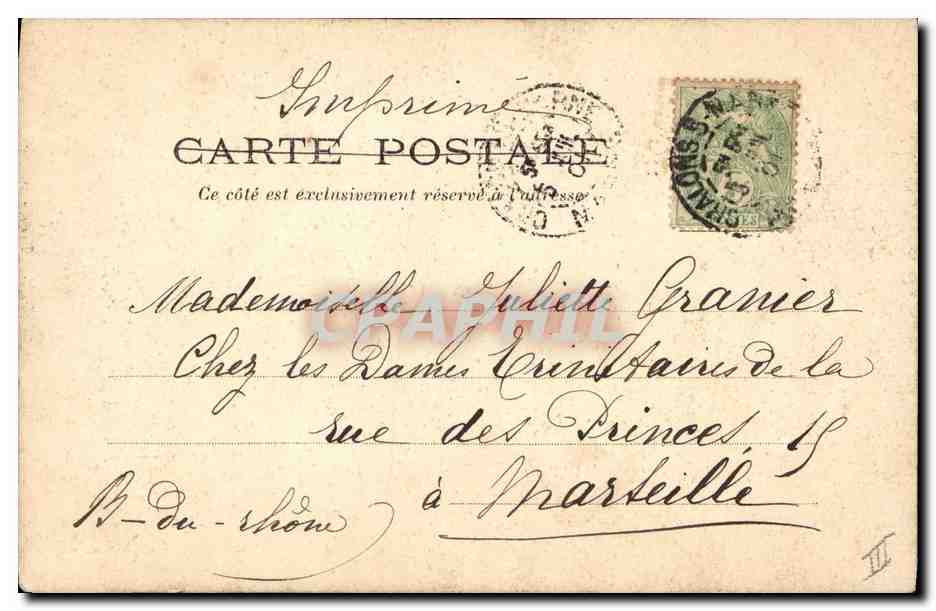 Imprimé
CARTE POSTALE
Ce côté est exclusivement réservé à l'adresse
CHALONS S MARNE
Mademoiselle Juliette Granier
CPAPHIL
Chez les Dames Trinitaires de la
rue des Princes, 15
à Marseille
B-du-rhône
III